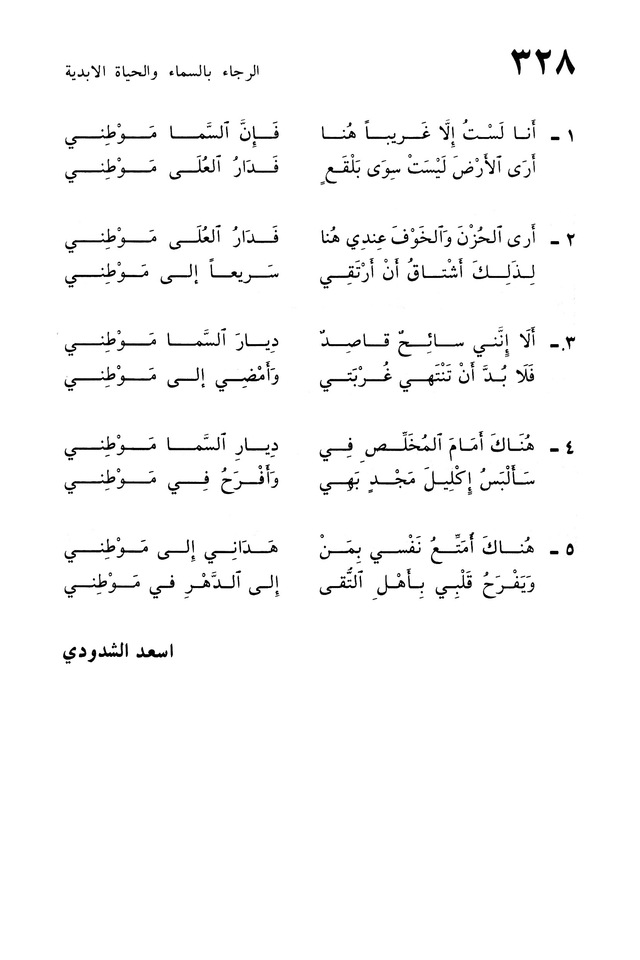 ٣٢٨
الرجاء بالسماء والحياة الابدية
١ ـ أَنا لَسْتُ إِلَّا غَرِيباً هُنا فَإِنَّ ٱلسَّمـا مَوْطِنـي
أَرَى ٱلأَرْضَ لَيْسَتْ سِوَى بَلْقَعٍ فَدَارُ العُلَـى مَوْطِنـي
٢ ـ أَرى ٱلحُزْنَ وَٱلخَوْفَ عِندِي هُنا فَدَارُ العُلَـى مَوْطِنـي
لِذَلِـكَ أَشْتـاقُ أَنْ أَرْتَقِـي سَريعـاً إلـى مَوْطِنـي
٣ ـ أَلَا إِنَّني سائِـحٌ قـاصِـدٌ دِيـارَ ٱلسَّمـا مَوْطِنـي
فَلَا بُـدَّ أَنْ تَنْتَهـي غُـرْبَتي وَأَمْضِـي إلى مَوْطِنـي
٤ ـ هُنَـاكَ أَمَامَ ٱلمُخَلِّـصِ فِي دِيـارِ ٱلسَّمـا مَوْطِنـي
سَأَلْبَسُ إِكْلِيلَ مَجْـدٍ بَهِي وَأَفْـرَحُ فِـي مَوْطِنـي
٥ ـ هُنـاكَ أُمَتِّـعُ نَفْسـي بِمَـنْ هَدَانِي إِلـى مَوْطِنـي
وَيَفْرَحُ قَلْبِي بِـأَهْـلِ ٱلتُّقـى إِلى ٱلدَّهْرِ في مَوْطِنـي
اسعد الشدودي